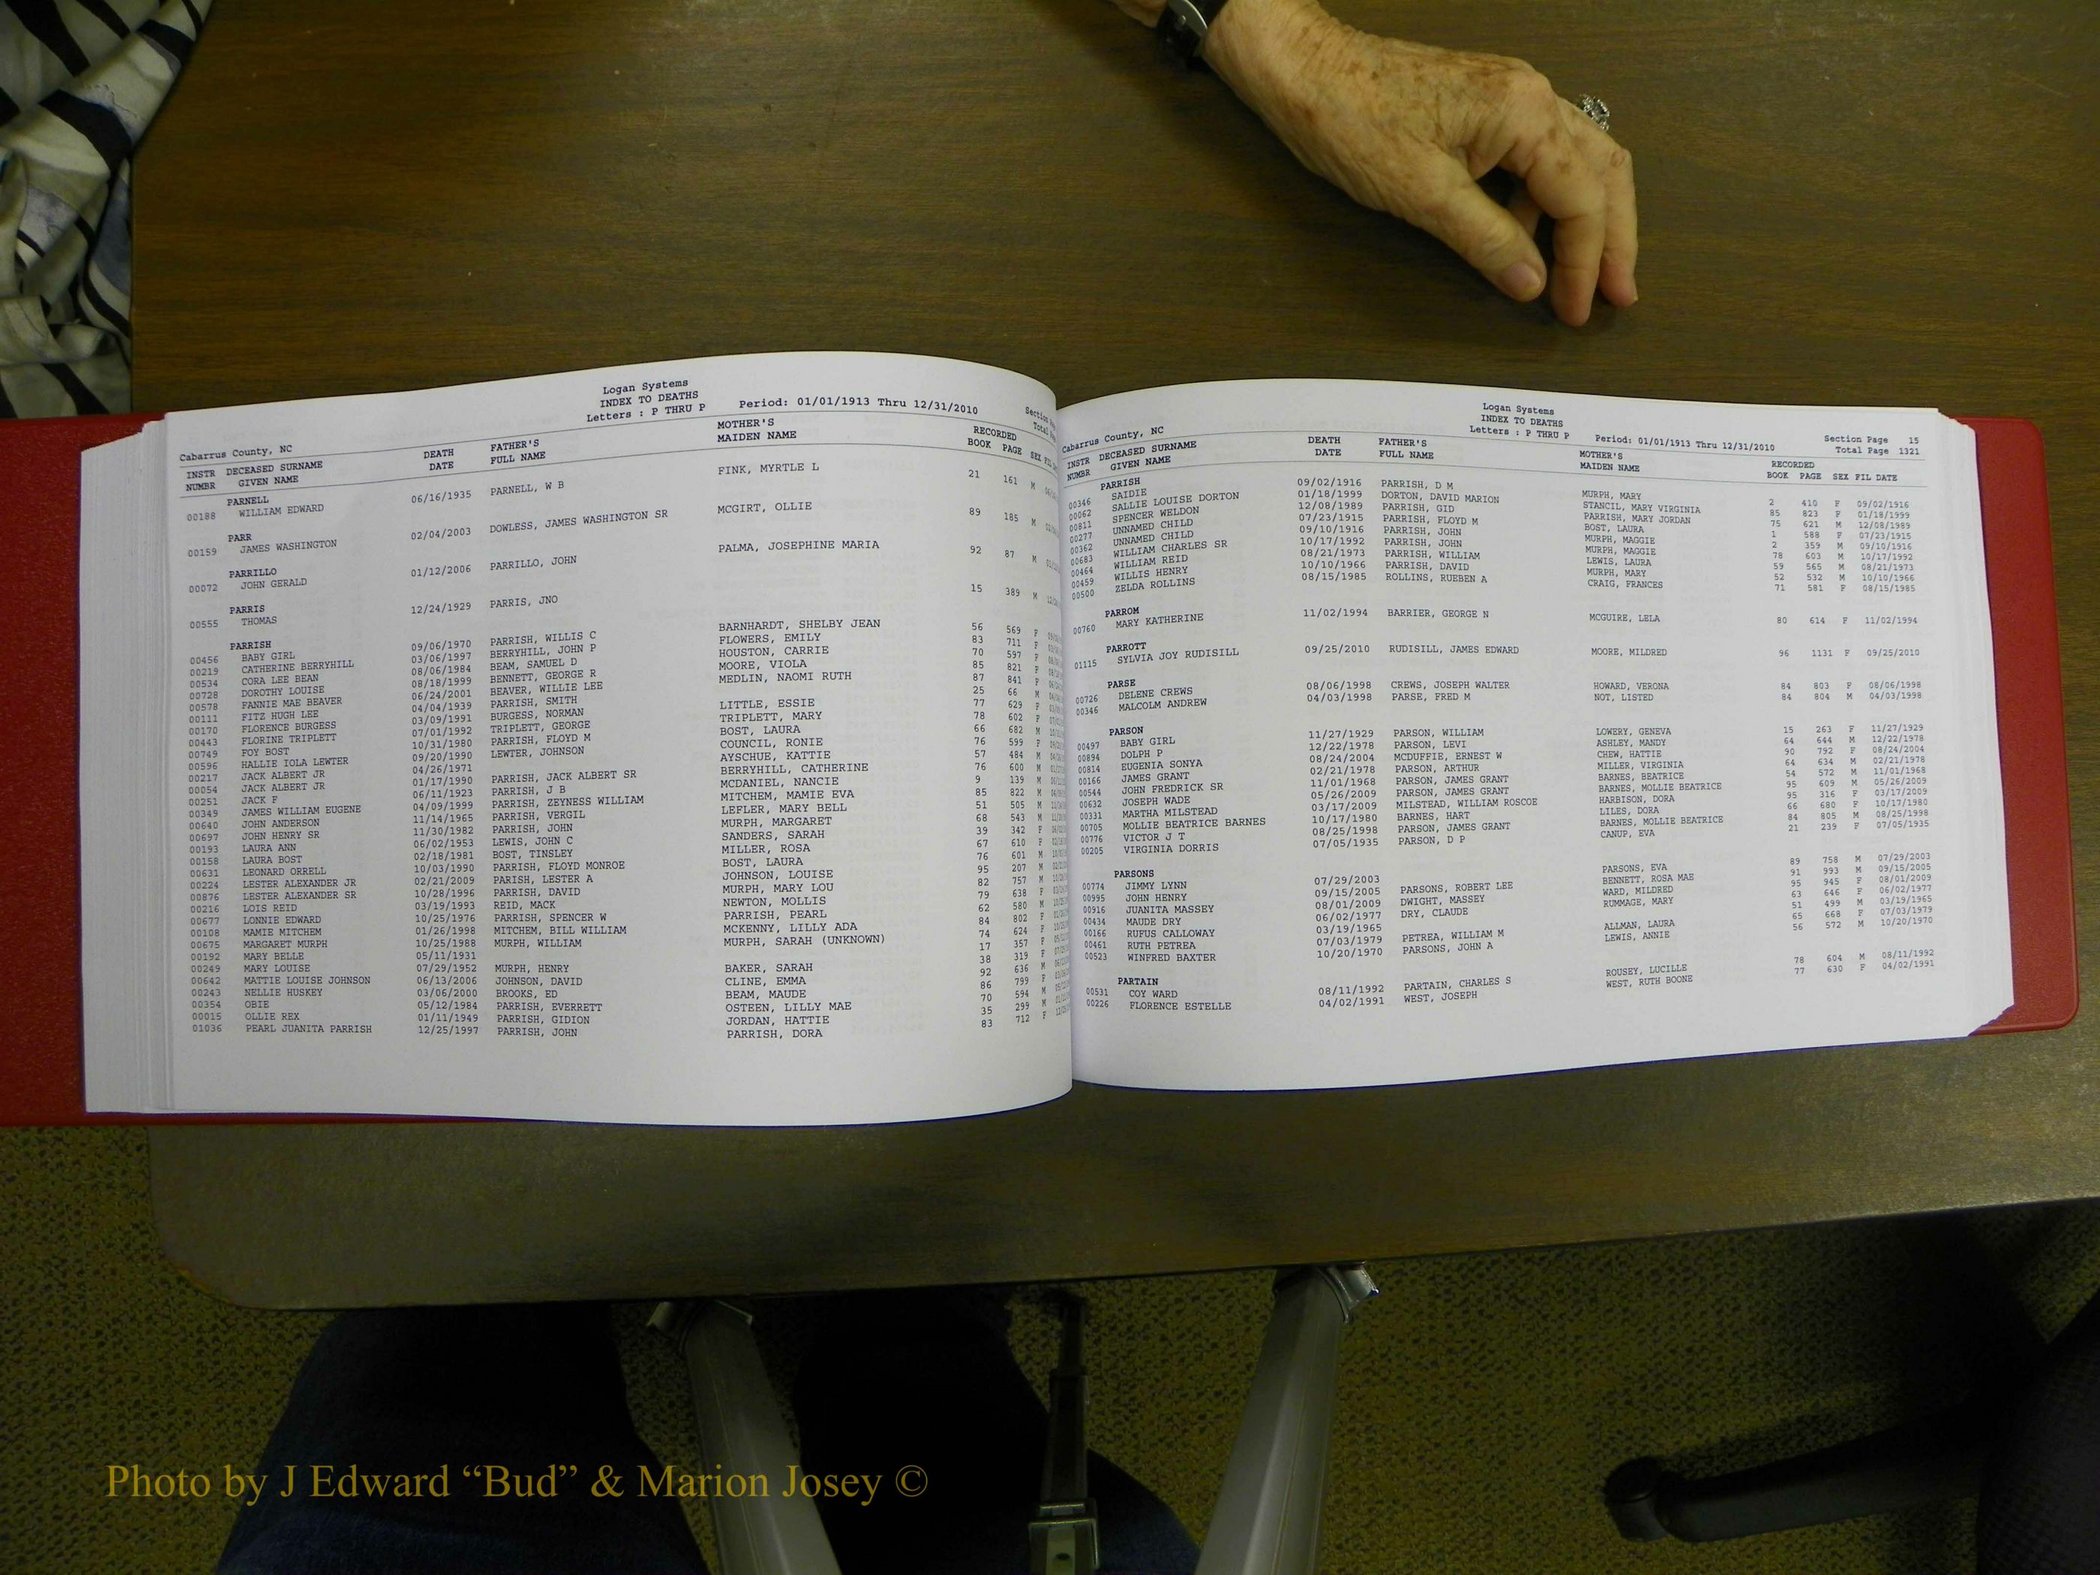 Logan Systems
INDEX TO DEATHS
Cabarrus County, NC Letters : P THRU P Period: 01/01/1913 Thru 12/31/2010
INSTR DECEASED SURNAME DEATH FATHER'S MOTHER'S RECORDED
NUMBR GIVEN NAME DATE FULL NAME MAIDEN NAME BOOK PAGE SEX FIL
PARNELL
00188 WILLIAM EDWARD 06/16/1935 PARNELL, W B FINK, MYRTLE L 21 161 M
PARR
00159 JAMES WASHINGTON 02/04/2003 DOWLESS, JAMES WASHINGTON SR MCGIRT, OLLIE 89 185 M
PARRILLO
00072 JOHN GERALD 01/12/2006 PARRILLO, JOHN PALMA, JOSEPHINE MARIA 92 87 M
PARRIS
00555 THOMAS 12/24/1929 PARRIS, JNO 15 389 M
PARRISH
00456 BABY GIRL 09/06/1970 PARRISH, WILLIS C BARNHARDT, SHELBY JEAN 56 569 F
00219 CATHERINE BERRYHILL 03/06/1997 BERRYHILL, JOHN P FLOWERS, EMILY 83 711 F
00534 CORA LEE BEAN 08/06/1984 BEAM, SAMUEL D HOUSTON, CARRIE 70 597 F
00728 DOROTHY LOUISE 08/18/1999 BENNETT, GEORGE R MOORE, VIOLA 85 821 F
00578 FANNIE MAE BEAVER 06/24/2001 BEAVER, WILLIE LEE MEDLIN, NAOMI RUTH 87 841 F
00111 FITZ HUGH LEE 04/04/1939 PARRISH, SMITH 25 66 M
00170 FLORENCE BURGESS 03/09/1991 BURGESS, NORMAN LITTLE, ESSIE 77 629 F
00443 FLORINE TRIPLETT 07/01/1992 TRIPLETT, GEORGE TRIPLETT, MARY 78 602 F
00749 FOY BOST 10/31/1980 PARRISH, FLOYD M BOST, LAURA 66 682 M
00596 HALLIE IOLA LEWTER 09/20/1990 LEWTER, JOHNSON COUNCIL, RONIE 76 599 F
00217 JACK ALBERT JR 04/26/1971 AYSCHUE, KATTIE 57 484 M
00054 JACK ALBERT JR 01/17/1990 PARRISH, JACK ALBERT SR BERRYHILL, CATHERINE 76 600 M
00251 JACK F 06/11/1923 PARRISH, J B MCDANIEL, NANCIE 9 139 M
00349 JAMES WILLIAM EUGENE 04/09/1999 PARRISH, ZEYNESS WILLIAM MITCHEM, MAMIE EVA 85 822 M
00640 JOHN ANDERSON 11/14/1965 PARRISH, VERGIL LEFLER, MARY BELL 51 505 M
00697 JOHN HENRY SR 11/30/1982 PARRISH, JOHN MURPH, MARGARET 68 543 M
00193 LAURA ANN 06/02/1953 LEWIS, JOHN C SANDERS, SARAH 39 342 F
00158 LAURA BOST 02/18/1981 BOST, TINSLEY MILLER, ROSA 67 610 F
00631 LEONARD ORRELL 10/03/1990 PARRISH, FLOYD MONROE BOST, LAURA 76 601 M
00224 LESTER ALEXANDER JR 02/21/2009 PARISH, LESTER A JOHNSON, LOUISE 95 207 M
00876 LESTER ALEXANDER SR 10/28/1996 PARRISH, DAVID MURPH, MARY LOU 82 757 M
00216 LOIS REID 03/19/1993 REID, MACK NEWTON, MOLLIS 79 638 F
00677 LONNIE EDWARD 10/25/1976 PARRISH, SPENCER W PARRISH, PEARL 62 580 M
00108 MAMIE MITCHEM 01/26/1998 MITCHEM, BILL WILLIAM MCKENNY, LILLY ADA 84 802 F
00675 MARGARET MURPH 10/25/1988 MURPH, WILLIAM MURPH, SARAH (UNKNOWN) 74 624 F
00192 MARY BELLE 05/11/1931 17 357 F
00249 MARY LOUISE 07/29/1952 MURPH, HENRY BAKER, SARAH 38 319 F
00642 MATTIE LOUISE JOHNSON 06/13/2006 JOHNSON, DAVID CLINE, EMMA 92 636
00243 NELLIE HUSKEY 03/06/2000 BROOKS, ED BEAM, MAUDE 86 799 F
00354 OBIE 05/12/1984 PARRISH, EVERRETT OSTEEN, LILLY MAE 70 594 M
00015 OLLIE REX 01/11/1949 PARRISH, GIDION JORDAN, HATTIE 35 299 M
01036 PEARL JUANITA PARRISH 12/25/1997 PARRISH, JOHN PARRISH, DORA 83 712 F
Logan Systems
INDEX TO DEATHS Section Page 15
Cabarrus County, NC Letters : P THRU P Period: 01/01/1913 Thru 12/31/2010 Total Page 1321
INSTR DECEASED SURNAME DEATH FATHER'S MOTHER'S RECORDED
NUMBR GIVEN NAME DATE FULL NAME MAIDEN NAME BOOK PAGE SEX FIL DATE
PARRISH
00346 SAIDIE 09/02/1916 PARRISH, D M MURPH, MARY 2 410 F 09/02/1916
00062 SALLIE LOUISE DORTON 01/18/1999 DORTON, DAVID MARION STANCIL, MARY VIRGINIA 85 823 F 01/18/1999
00811 SPENCER WELDON 12/08/1989 PARRISH, GID PARRISH, MARY JORDAN 75 621 M 12/08/1989
00277 UNNAMED CHILD 07/23/1915 PARRISH, FLOYD M BOST, LAURA 1 588 F 07/23/1915
00362 UNNAMED CHILD 09/10/1916 PARRISH, JOHN MURPH, MAGGIE 2 359 M 09/10/1916
00683 WILLIAM CHARLES SR 10/17/1992 PARRISH, JOHN MURPH, MAGGIE 78 603 M 10/17/1992
00464 WILLIAM REID 08/21/1973 PARRISH, WILLIAM LEWIS, LAURA 59 565 M 08/21/1973
00459 WILLIS HENRY 10/10/1966 PARRISH, DAVID MURPH, MARY 52 532 M 10/10/1966
00500 ZELDA ROLLINS 08/15/1985 ROLLINS, RUEBEN A CRAIG, FRANCES 71 581 F 08/15/1985
PARROM
00760 MARY KATHERINE 11/02/1994 BARRIER, GEORGE N MCGUIRE, LELA 80 614 F 11/02/1994
PARROTT
01115 SYLVIA JOY RUDISILL 09/25/2010 RUDISILL, JAMES EDWARD MOORE, MILDRED 96 1131 F 09/25/2010
PARSE
00726 DELENE CREWS 08/06/1998 CREWS, JOSEPH WALTER HOWARD, VERONA 84 803 F 08/06/1998
00346 MALCOLM ANDREW 04/03/1998 PARSE, FRED M NOT, LISTED 84 804 M 04/03/1998
PARSON
00497 BABY GIRL 11/27/1929 PARSON, WILLIAM LOWERY, GENEVA 15 263 F 11/27/1929
00894 DOLPH P 12/22/1978 PARSON, LEVI ASHLEY, MANDY 64 644 M 12/22/1978
00814 EUGENIA SONYA 08/24/2004 MCDUFFIE, ERNEST W CHEW, HATTIE 90 792 F 08/24/2004
00166 JAMES GRANT 02/21/1978 PARSON, ARTHUR MILLER, VIRGINIA 64 634 M 02/21/1978
00544 JOHN FREDRICK SR 11/01/1968 PARSON, JAMES GRANT BARNES, BEATRICE 54 572 M 11/01/1968
00632 JOSEPH WADE 05/26/2009 PARSON, JAMES GRANT BARNES, MOLLIE BEATRICE 95 609 M 05/26/2009
00331 MARTHA MILSTEAD 03/17/2009 MILSTEAD, WILLIAM ROSCOE HARBISON, DORA 95 316 F 03/17/2009
00705 MOLLIE BEATRICE BARNES 10/17/1980 BARNES, HART LILES, DORA 66 680 F 10/17/1980
00776 VICTOR J T 08/25/1998 PARSON, JAMES GRANT BARNES, MOLLIE BEATRICE 84 805 M 08/25/1998
00205 VIRGINIA DORRIS 07/05/1935 PARSON, D P CANUP, EVA 21 239 F 07/05/1935
PARSONS
00774 JIMMY LYNN 07/29/2003 PARSONS, EVA 89 758 M 07/29/2003
00995 JOHN HENRY 09/15/2005 PARSONS, ROBERT LEE BENNETT, ROSA MAE 91 993 M 09/15/2005
00916 JUANITA MASSEY 08/01/2009 DWIGHT, MASSEY WARD, MILDRED 95 945 F 08/01/2009
00434 MAUDE DRY 06/02/1977 DRY, CLAUDE RUMMAGE, MARY 63 646 F 06/02/1977
00166 RUFUS CALLOWAY 03/19/1965 51 499 M 03/19/1965
00461 RUTH PETREA 07/03/1979 PETREA, WILLIAM M ALLMAN, LAURA 65 668 F 07/03/1979
00523 WINFRED BAXTER 10/20/1970 PARSONS, JOHN A LEWIS, ANNIE 56 572 M 10/20/1970
PARTAIN
00531 COY WARD 08/11/1992 PARTAIN, CHARLES S ROUSEY, LUCILLE 78 604 M 08/11/1992
00226 FLORENCE ESTELLE 04/02/1991 WEST, JOSEPH WEST, RUTH BOONE 77 630 F 04/02/1991
Photo by J Edward “Bud” & Marion Josey ©